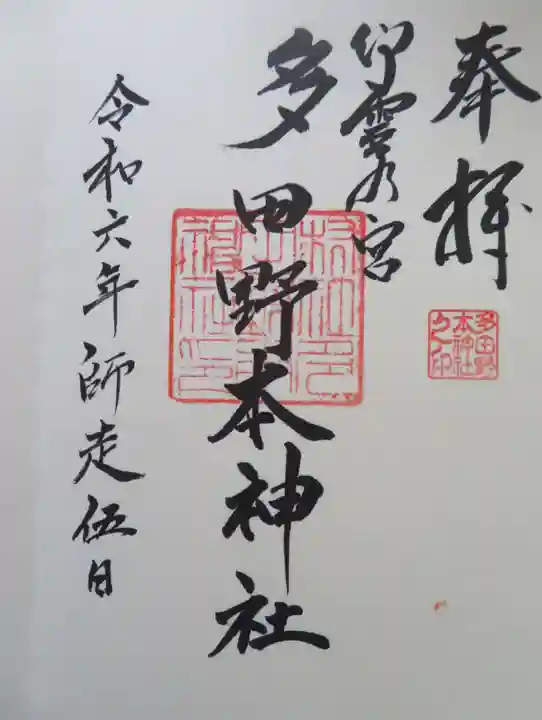 奉拝
御霊乃宮
多田野本神社
令和六年師走伍日
多田野
本神社
之印